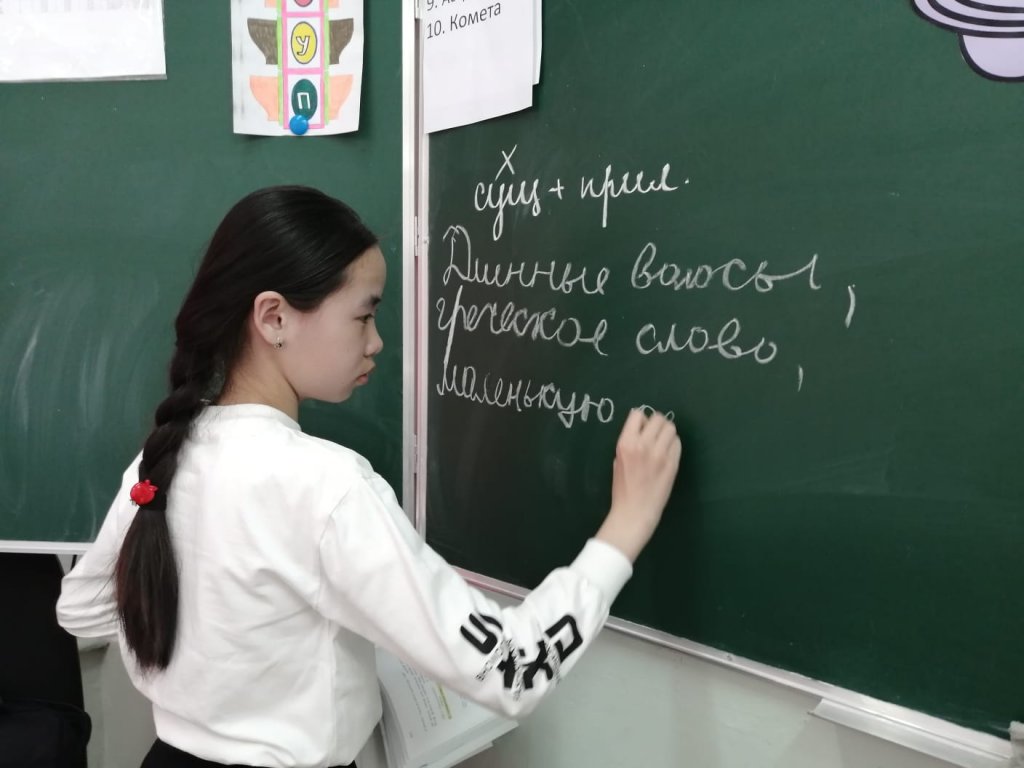 10. Комета
У
П
х
сущ + прил.
Длинные волосы,
греческое слово,
маленькую